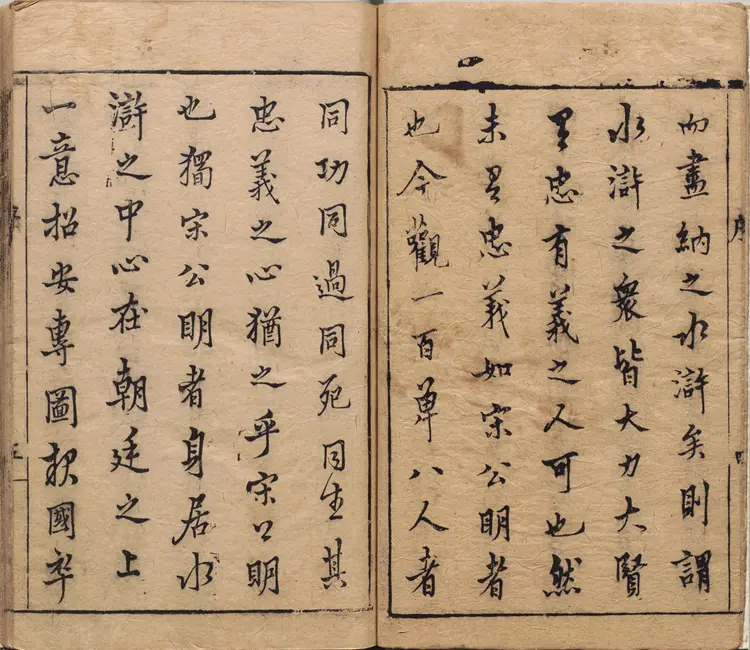 序
而盡納之水滸矣則謂
水滸之衆皆大力大賢
有忠有義之人可也然
未有忠義如宋公明者
也今觀一百單八人者
同功同過同死同生其
忠義之心猶之乎宋公明
也獨宋公明者身居水
滸之中心在朝廷之上
一意招安專圖報國卒